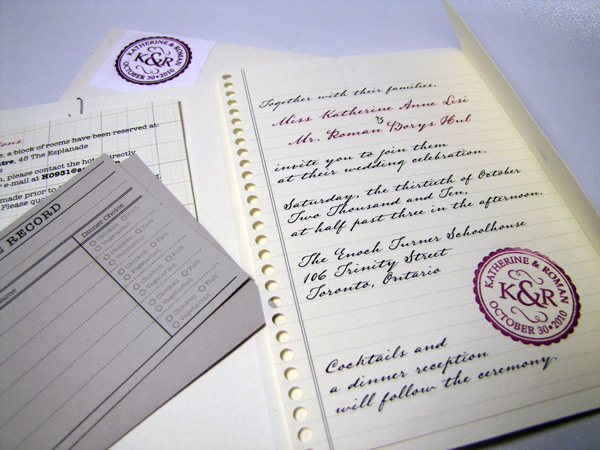 KATHERINE & ROMAN
K&R
OCTOBER 30•2010
Together with their families,
Miss Katherine Anne Lisi
&
Mr. Roman Borys Hul
invite you to join them
at their wedding celebration.
Saturday, the thirtieth of October
Two Thousand and Ten,
at half past three in the afternoon.
The Enoch Turner Schoolhouse
106 Trinity Street
Toronto, Ontario
KATHERINE & ROMAN
K&R
OCTOBER 30•2010
Cocktails and
a dinner reception
will follow the ceremony.
a block of rooms have been reserved at:
45 The Esplanade
please contact the hotel directly
e-mail at H0931@
made prior to
Please
RECORD
Name
Dinner Choice
Vegetarian